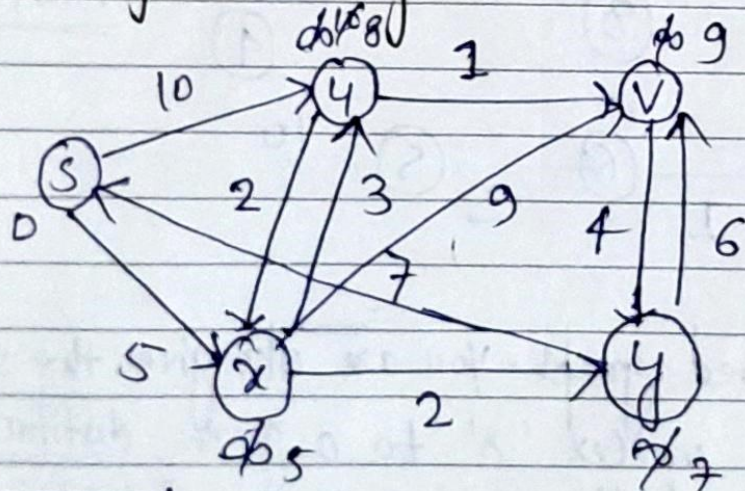 ∞ 10 8
1
∞ 9
10
u
v
s
2
3
9
4
6
0
7
5
x
2
y
∞ 5
∞ 7